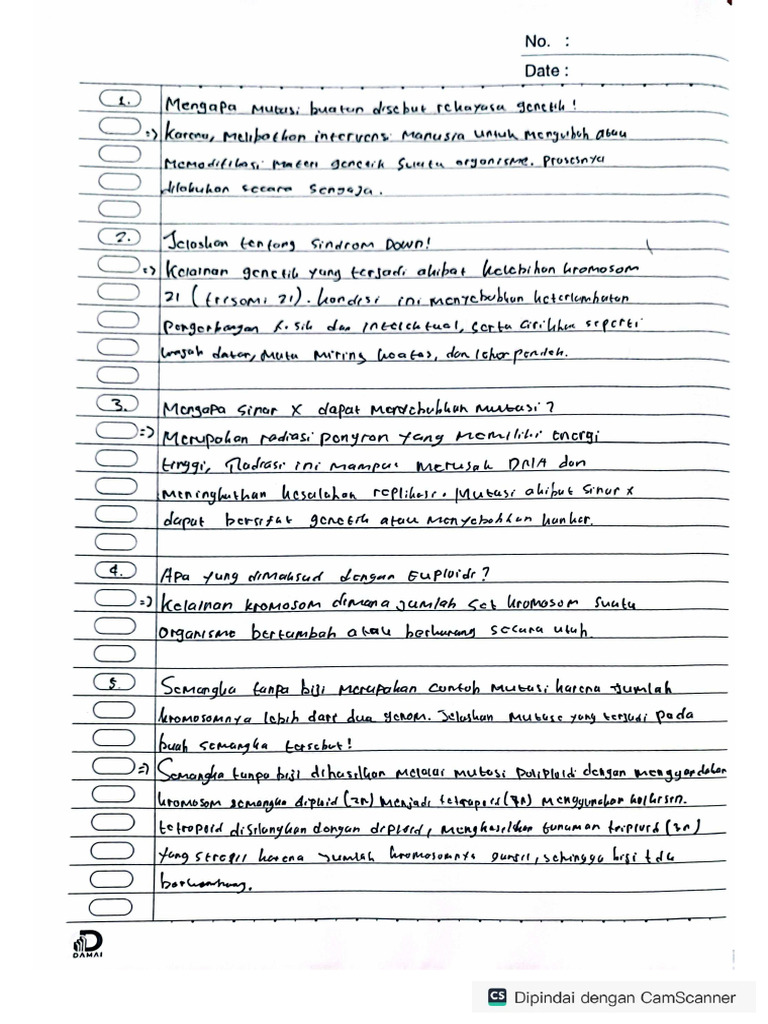 No. :
Date :
1. Mengapa mutasi buatan disebut rekayasa genetik!
=> Karena, melibatkan intervensi manusia untuk mengubah atau
memodifikasi materi genetik suatu organisme. Prosesnya
dilakukan secara sengaja.
2. Jelaskan tentang sindrom Down!
=> Kelainan genetik yang terjadi akibat kelebihan kromosom
21 (trisomi 21). kondisi ini menyebabkan keterlambatan
Pengembangan fisik dan intelektual, serta ciri khas seperti
wajah datar, mata miring keatas, dan leher pendek.
3. Mengapa sinar X dapat menyebabkan mutasi?
=> Merupakan radiasi pengion yang memiliki energi
tinggi, Radiasi ini mampu merusak DNA dan
meningkatkan kesalahan replikasi. Mutasi akibat sinar x
dapat bersifat genetik atau menyebabkan kanker.
4. Apa yang dimaksud dengan Euploidi?
=> Kelainan kromosom dimana jumlah set kromosom suatu
organisme bertambah atau berkurang secara utuh.
5. Semangka tanpa biji merupakan contoh mutasi karena jumlah
kromosomnya lebih dari dua genom. Jelaskan mutasi yang terjadi pada
buah semangka tersebut!
=> Semangka tanpa biji dihasilkan melalui mutasi poliploid dengan menggandakan
kromosom semangka diploid (2n) menjadi tetraploid (4n) menggunakan kolkisin.
tetraploid disilangkan dengan diploid, menghasilkan tanaman triploid (3n)
yang steril karena jumlah kromosomnya ganjil, sehingga biji tdk
berkembang.
DAMAI
CS Dipindai dengan CamScanner